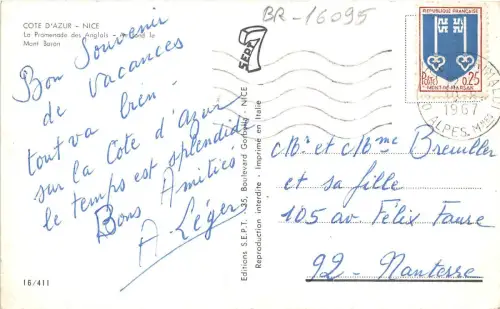 COTE D'AZUR - NICE
La Promenade des Anglais - le
Mont Boron
Bon Souvenir
de vacances
tout va bien
sur la Côte d'Azur
le temps est splendide
Bons Amitiés
A. Léger
16/411
Editions S.E.P.T. - 35, Boulevard - NICE
Reproduction interdite - Imprimé en Italie
SEPT
BR-16095
REPUBLIQUE FRANÇAISE
Postes 0,25
MONT-DE-MARSAN
1967
ALPES-MMES
et
et sa fille
105 av Félix Faure
92 - Nanterre